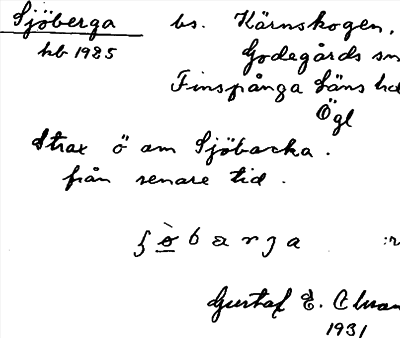 Sjöberga bs. Kärnskogen,
hb 1985 Godegårds sn
Finspånga läns hd
Ögl
Strax ö om Sjöbacka.
från senare tid.
Gustaf E.
1931